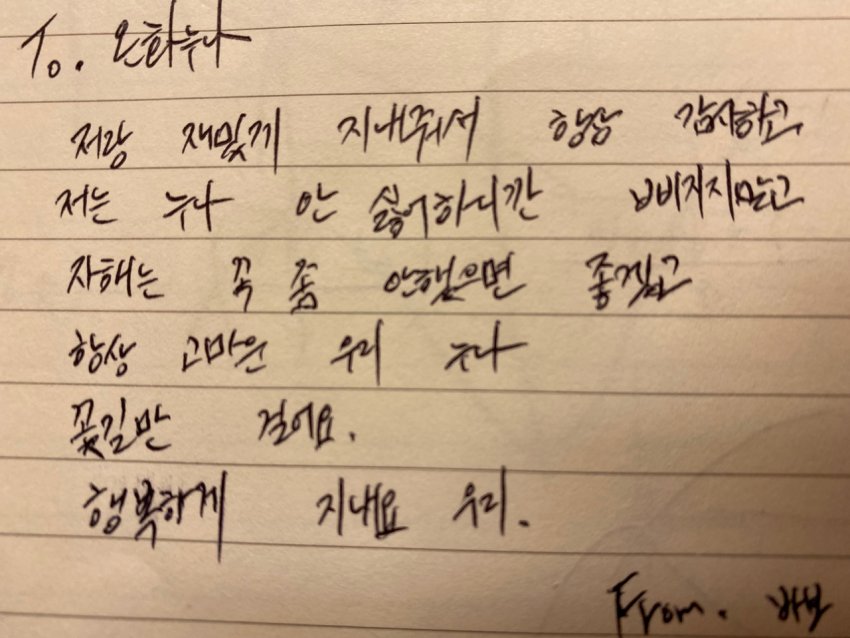 To. 온화누나
저랑 재밌게 지내줘서 항상 감사하고
저는 누나 안 싫어하니깐 삐지지마는고
자해는 꼭 좀 안했으면 좋겠고
항상 고마운 우리 누나
꽃길만 걸어요.
행복하게 지내요 우리.
From. 바보